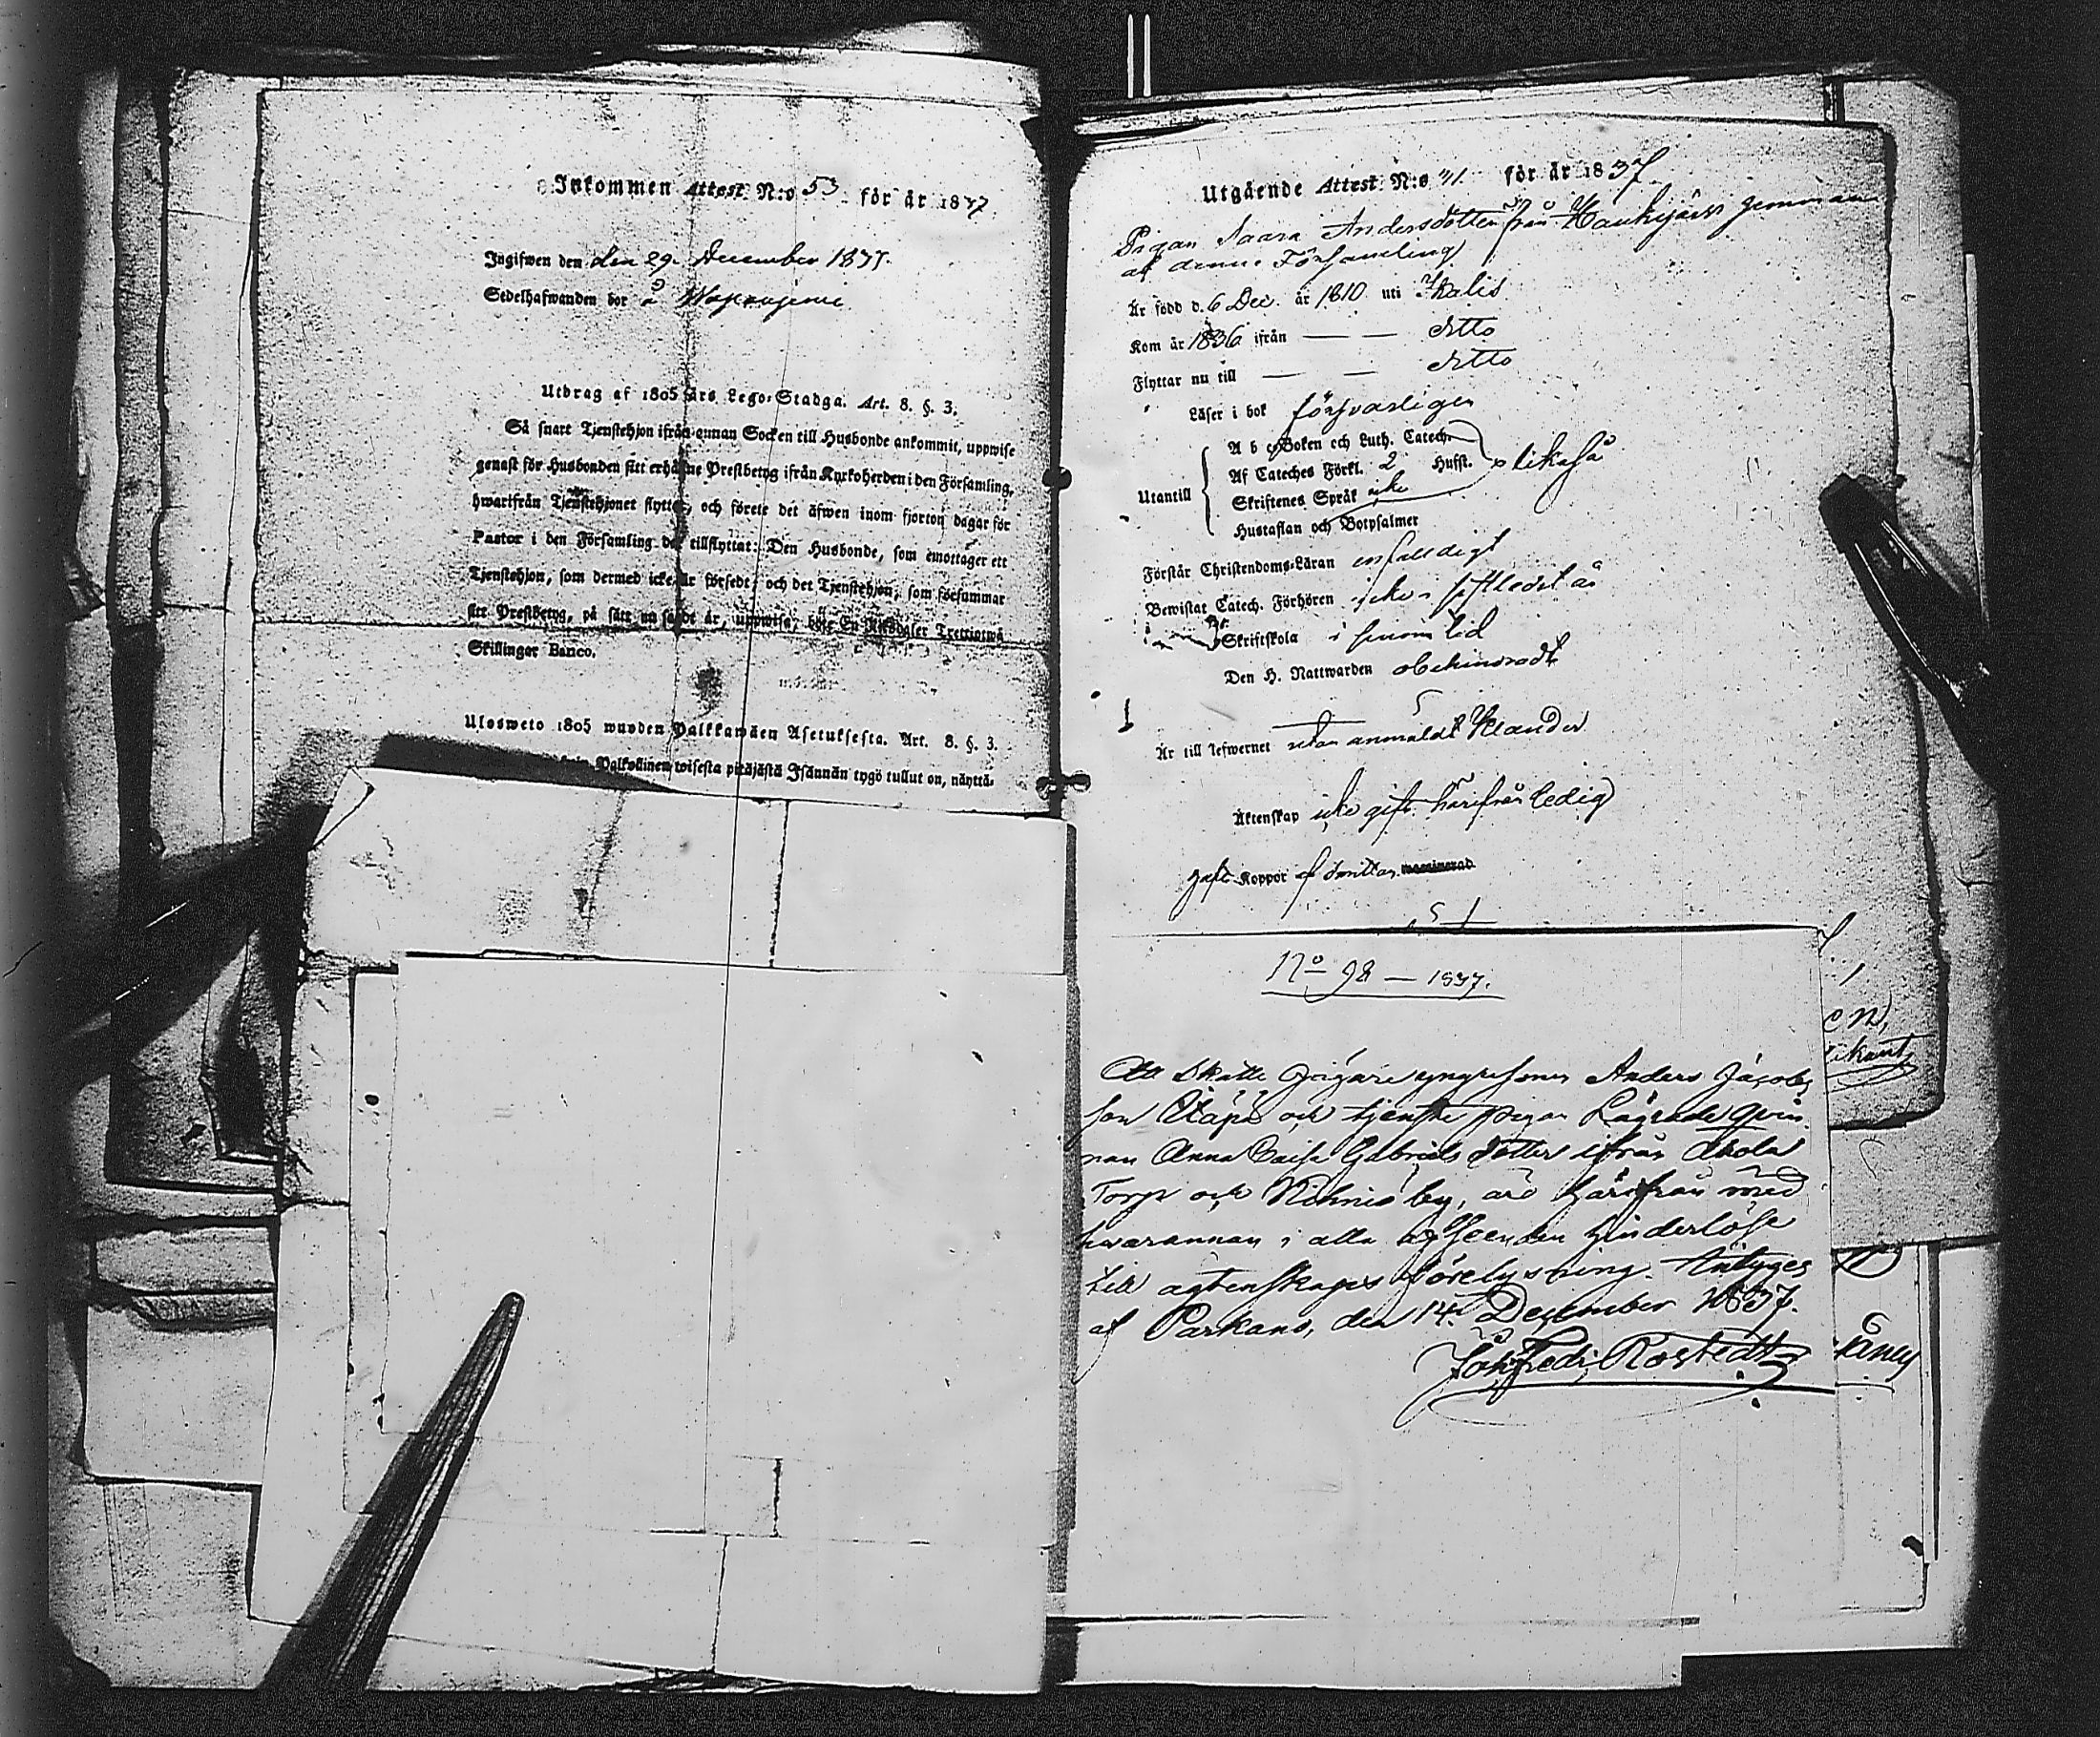 Inkommen Attest N:o 53 för år 1837
Ingifwen den den 29 December 1837.
Sedelhafwanden bor å
Utdrag af 1805 års Lego-Stadga. Art. 8. §. 3.
Så snart Tjenstehjon ifrån annan Socken till Husbonde ankommit, uppwise
genast för Husbonden sitt erhållne Prestbetyg ifrån Kyrkoherden i den Församling,
hwarifrån Tjenstehjonet flyttat, och förete det äfwen inom fjorton dagar för
Pastor i den Församling det tillflyttat: Den Husbonde, som emottager ett
Tjenstehjon, som dermed icke är försedt, och det Tjenstehjon, som försummar
sitt Prestbetyg, på sätt nu sagdt är, uppwisa, böte En Riksdaler Trettiotwå
Skillingar Banco.
Ulosweto 1805 wuoden Palkkawäen Asetuksesta. Art. 8. §. 3.
Palkollinen wisesta pitäjästä Isännän tygö tullut on, näyttä-
Utgående Attest N:o 41. för år 1837.
Pigan Saara Andersdotter från Haukijärvi
af denne Församling
Är född d. 6 Dec. år 1810 uti Ikalis
Kom år 1836 ifrån — — ditto
Flyttar nu till — — ditto
Läser i bok försvarligen
Utantill
A b c Boken och Luth. Catech.
Af Cateches Förkl. 2 Hufst. likaså
Skriftenes Språk icke
Hustaflan och Botpsalmer
Förstår Christendoms-Läran enfalldigt
Bewistat Catech. Förhören icke i
Skriftskola i sinom tid
Den H. Nattwarden obehindradt
Är till lefwernet utan anmäldt klander
Äktenskap icke gift härifrån ledig
haft Koppor
N:o 98 — 1837.
Att Skatte Anders Jacobs
son och tjenste pigan
nan Anna Caisa Gabriels dotter ifrån Ahola
Torp och by, äro härifrån med
hvarannan i alla afseenden hinderlöse
till ägtenskaps förelysning. Intygas
af Parkano, den 14. December 1837.
Joh Fredr. Rostedt